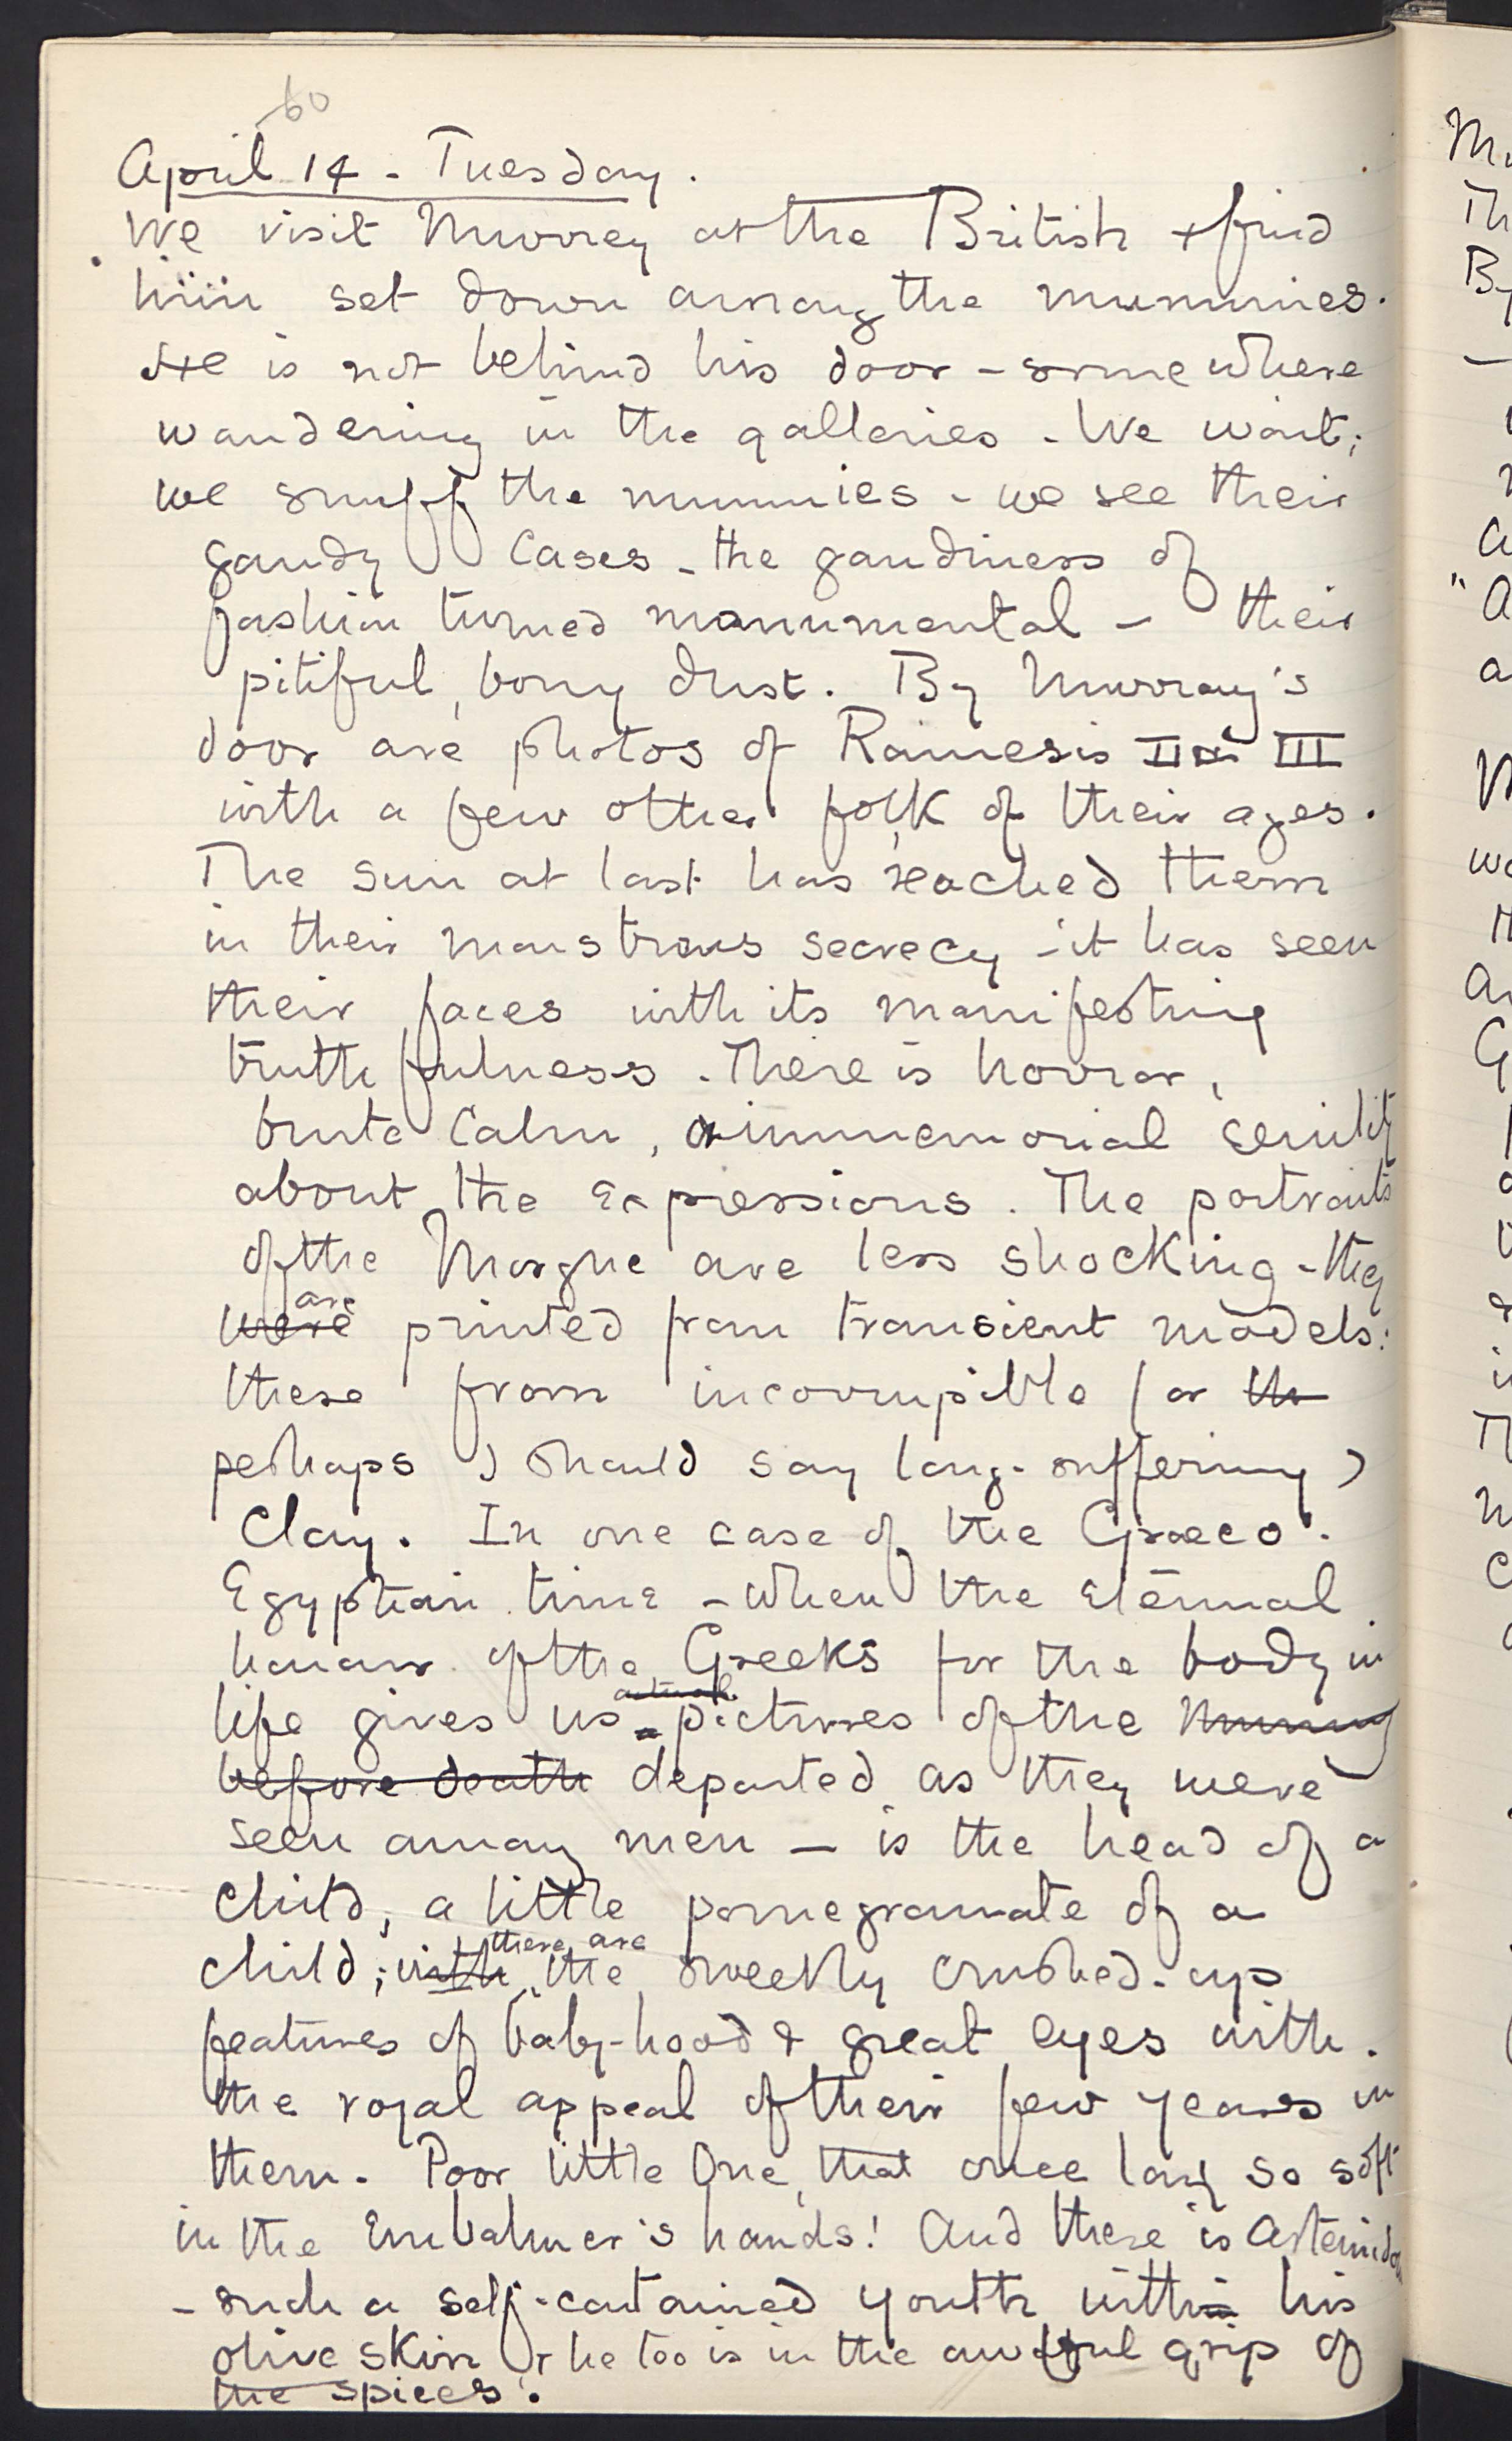 60
April 14 - Tuesday.
We visit Murray at the British + find
him set down among the mummies.
He is not behind his door - somewhere
wandering in the galleries - We wait;
we snuff the mummies - we see their
gaudy cases - the gaudiness of
fashion turned monumental - their
pitiful, bony dust. By Murray's
door are photos of Ramesis II & III
with a few other folk of their ages.
The sun at last has reached them
in their monstrous secrecy - it has seen
their faces with its manifesting
truthfulness. There is horror,
brute calm, & immemorial senility
about the expressions. The portraits
of the Morgue are less shocking - they
are
were printed from transient models:
these from incorrupible (or th
perhaps I should say long-suffering)
Clay. In one case of the Graeco-
Egyptian time - when the eternal
honour of the Greeks for the body in
actual
life gives us a pictures of the Mummy
before death departed as they were
seen among men - is the head of a
child, a little pomegranate of a
there are
child; with the sweetly crushed-up
features of baby-hood & great eyes with
the royal appeal of their few years in
them. Poor little One, that once lay so soft
in the Embalmer's hands! And there is Artemidor
- such a self-contained youth within his
olive skin & he too is in the awful grip of
the spices.
M
Th
By